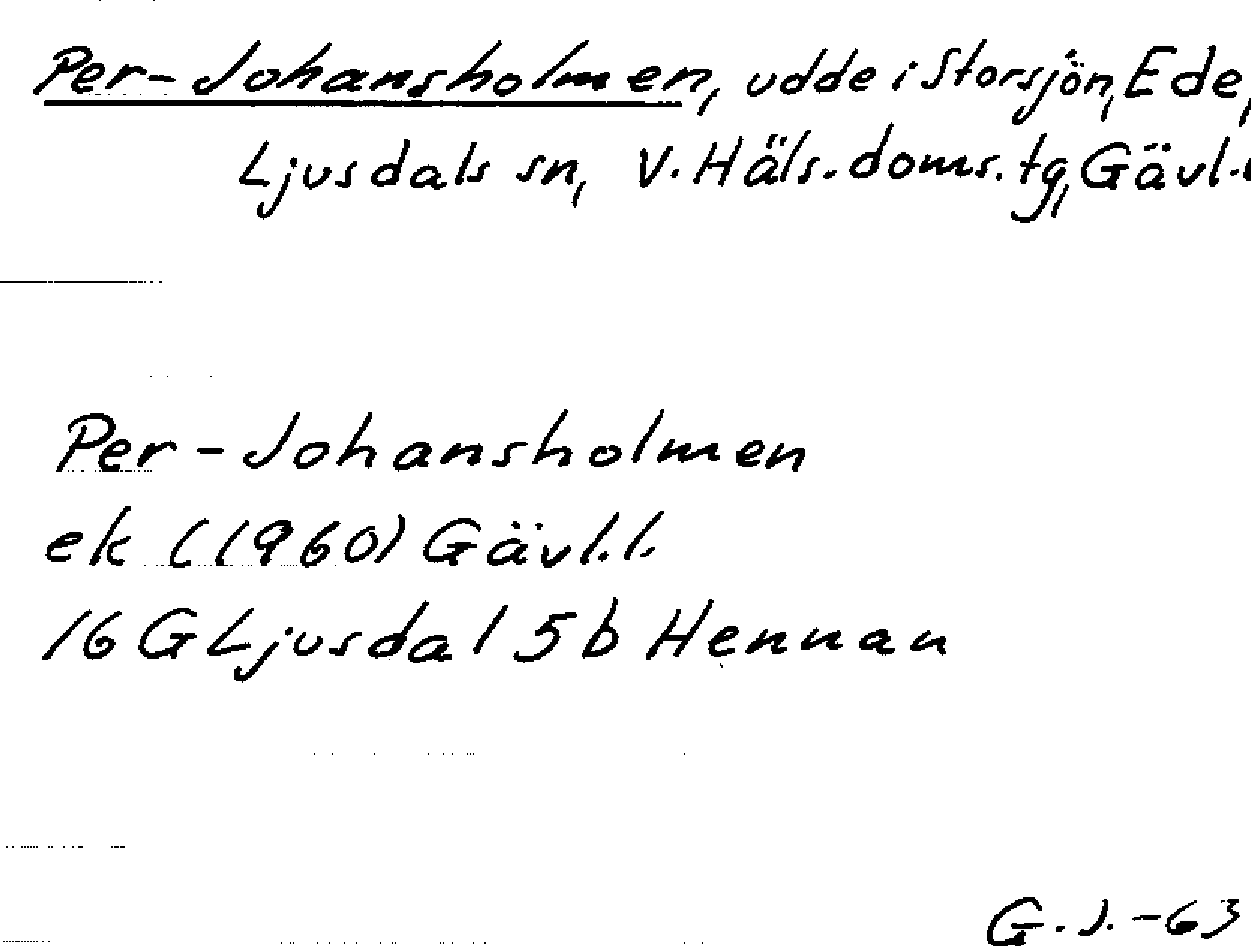 Per-Johansholmen, udde i Storsjön, Ede,
Ljusdals sn, V. Häls. doms. tg, Gävl.
Per-Johansholmen
ek (1960) Gävl.l.
16 G Ljusdal 5 b Hennan
G.J.-63